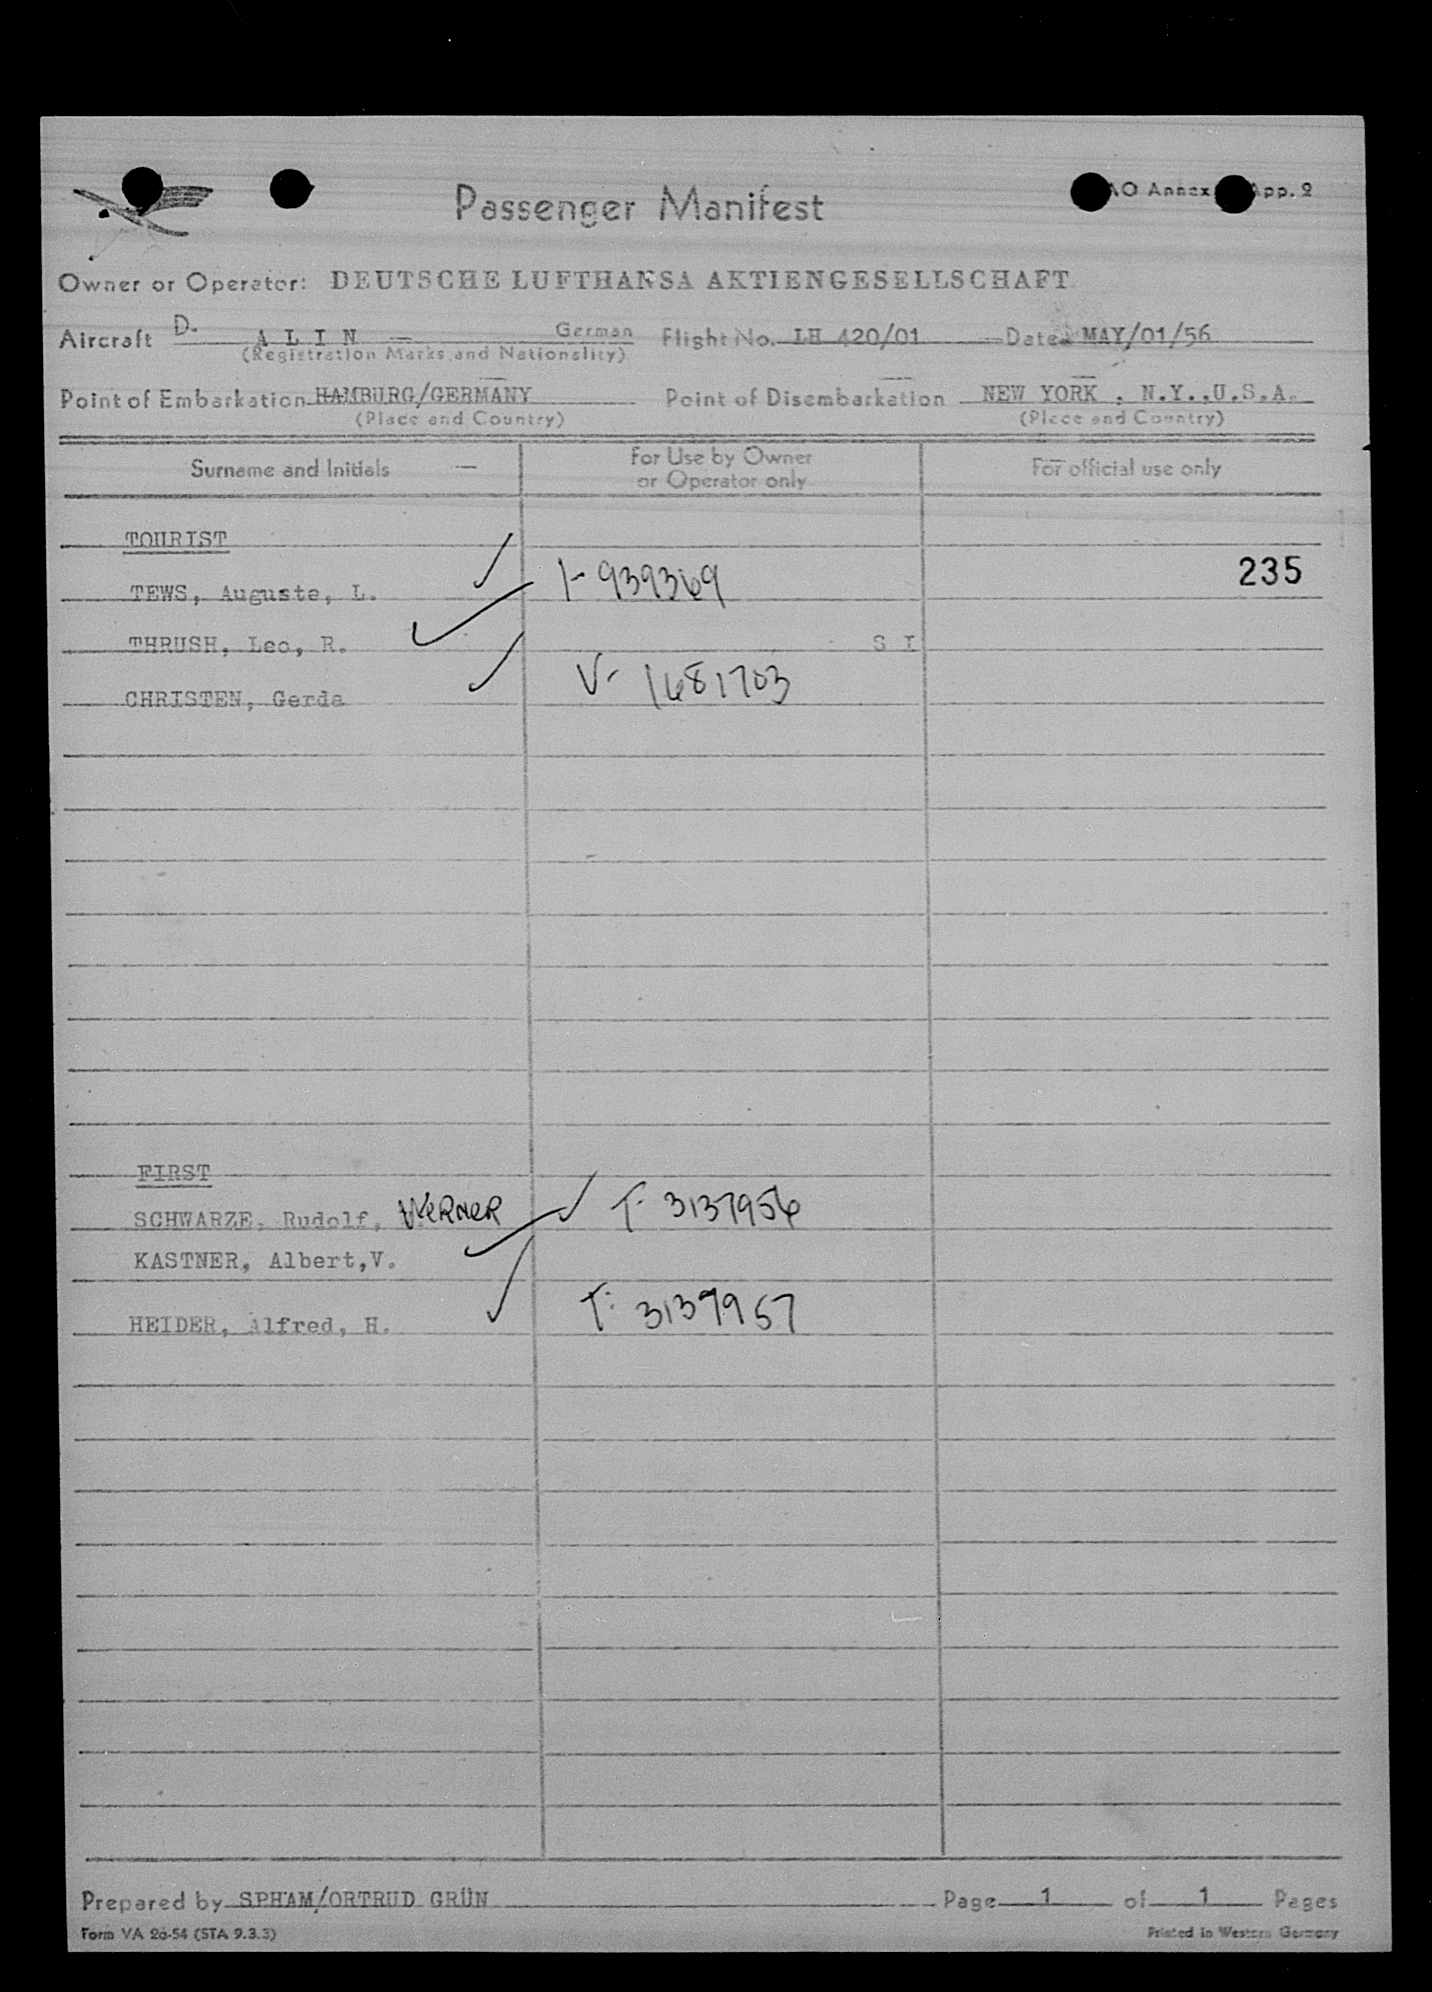 Passenger Manifest
AO Annex App. 2
Owner or Operator: DEUTSCHE LUFTHANSA AKTIENGESELLSCHAFT
Aircraft D. A L I N — German Flight No. LH 420/01 Date MAY/01/56
(Registration Marks and Nationality)
Point of Embarkation HAMBURG/GERMANY Point of Disembarkation NEW YORK , N.Y.,U.S.A.
(Place and Country) (Place and Country)
Surname and Initials For Use by Owner or Operator only For official use only
TOURIST
235
TEWS, Auguste, L. 1-939369
THRUSH, Leo, R. S I
CHRISTEN, Gerda V- 1681703
FIRST
SCHWARZE, Rudolf, WERNER T- 3137956
KASTNER, Albert,V.
HEIDER, Alfred, H. T- 3137957
Prepared by SPHAM/ORTRUD GRÜN Page 1 of 1 Pages
Form VA 26-54 (STA 9.3.3) Printed in Western Germany